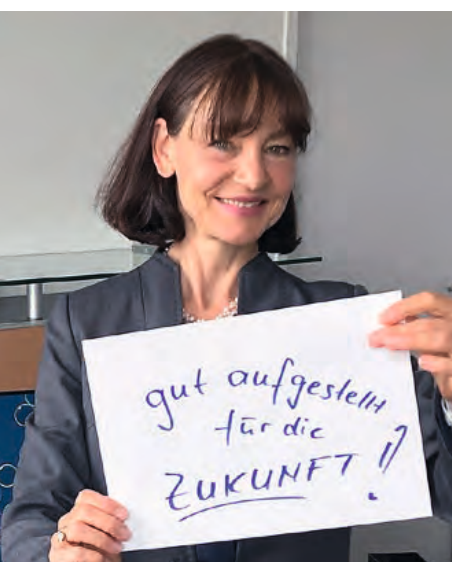 gut aufgestellt
für die
ZUKUNFT!